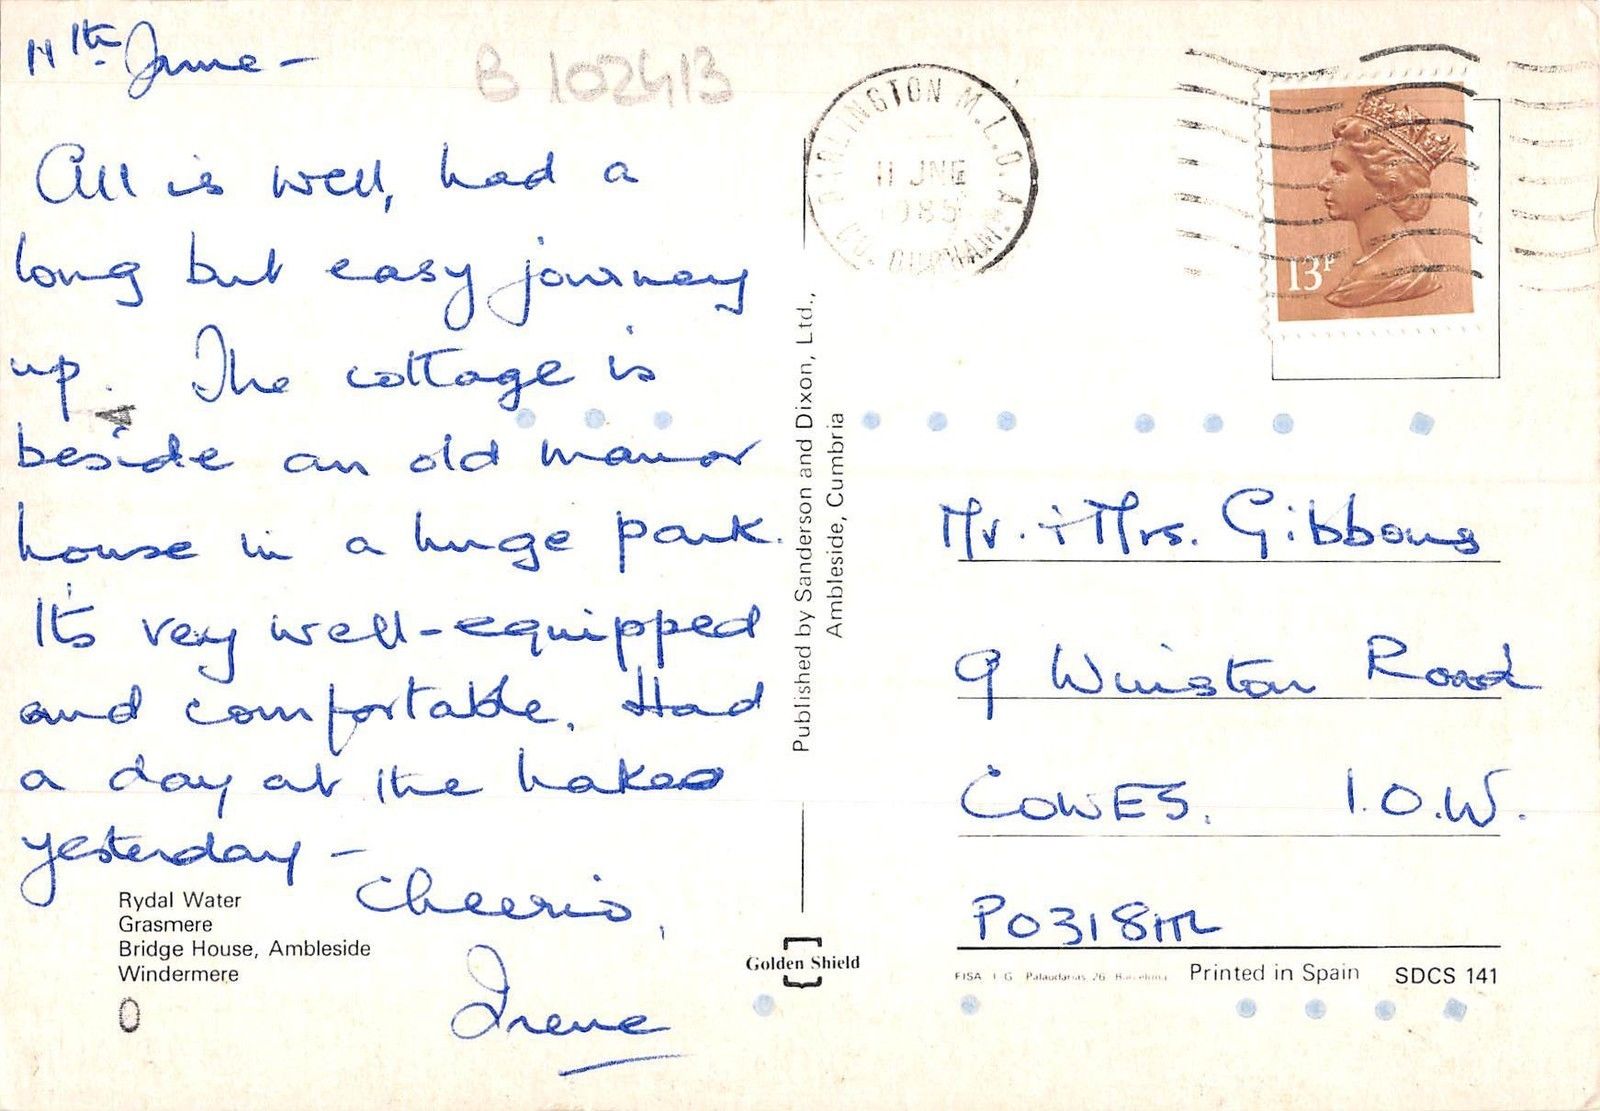 11th June -
B 102413
All is well, had a
long but easy journey
up. The cottage is
beside an old manor
house in a huge park.
It's very well-equipped
and comfortable. Had
a day at the Lakes
yesterday -
Cheerio,
Irene
Rydal Water
Grasmere
Bridge House, Ambleside
Windermere
0
Published by Sanderson and Dixon, Ltd.,
Ambleside, Cumbria
Golden Shield
DARLINGTON M.L.O. A.
11 JNE
1985
CO. DURHAM
13P
Mr. + Mrs. Gibbons
9 Winston Road
COWES. I.O.W.
PO31 8
FISA I G Palaudarias, 26 Barcelona Printed in Spain SDCS 141